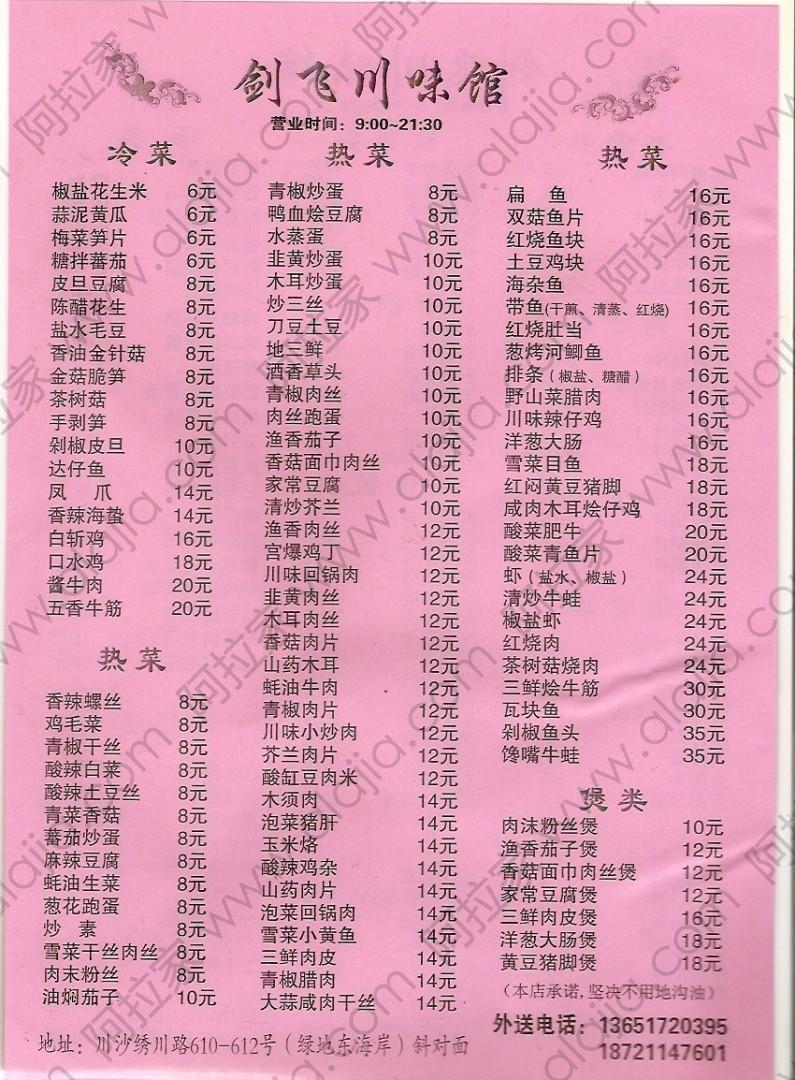 剑飞川味馆
营业时间：9:00~21:30
冷菜
椒盐花生米 6元
蒜泥黄瓜 6元
梅菜笋片 6元
糖拌蕃茄 6元
皮旦豆腐 8元
陈醋花生 8元
盐水毛豆 8元
香油金针菇 8元
金菇脆笋 8元
茶树菇 8元
手剥笋 8元
剁椒皮旦 10元
达仔鱼 10元
凤 爪 14元
香辣海蜇 14元
白斩鸡 16元
口水鸡 18元
酱牛肉 20元
五香牛筋 20元
热菜
香辣螺丝 8元
鸡毛菜 8元
青椒干丝 8元
酸辣白菜 8元
酸辣土豆丝 8元
青菜香菇 8元
蕃茄炒蛋 8元
麻辣豆腐 8元
蚝油生菜 8元
葱花跑蛋 8元
炒 素 8元
雪菜干丝肉丝 8元
肉末粉丝 8元
油焖茄子 10元
热菜
青椒炒蛋 8元
鸭血烩豆腐 8元
水蒸蛋 8元
韭黄炒蛋 10元
木耳炒蛋 10元
炒三丝 10元
刀豆土豆 10元
地三鲜 10元
酒香草头 10元
青椒肉丝 10元
肉丝跑蛋 10元
渔香茄子 10元
香菇面巾肉丝 10元
家常豆腐 10元
清炒芥兰 10元
渔香肉丝 12元
宫爆鸡丁 12元
川味回锅肉 12元
韭黄肉丝 12元
木耳肉丝 12元
香菇肉片 12元
山药木耳 12元
蚝油牛肉 12元
青椒肉片 12元
川味小炒肉 12元
芥兰肉片 12元
酸缸豆肉米 12元
木须肉 14元
泡菜猪肝 14元
玉米烙 14元
酸辣鸡杂 14元
山药肉片 14元
泡菜回锅肉 14元
雪菜小黄鱼 14元
三鲜肉皮 14元
青椒腊肉 14元
大蒜咸肉干丝 14元
热菜
扁 鱼 16元
双菇鱼片 16元
红烧鱼块 16元
土豆鸡块 16元
海杂鱼 16元
带鱼(干煎、清蒸、红烧) 16元
红烧肚当 16元
葱烤河鲫鱼 16元
排条（椒盐、糖醋） 16元
野山菜腊肉 16元
川味辣仔鸡 16元
洋葱大肠 16元
雪菜目鱼 18元
红闷黄豆猪脚 18元
咸肉木耳烩仔鸡 18元
酸菜肥牛 20元
酸菜青鱼片 20元
虾（盐水、椒盐） 24元
清炒牛蛙 24元
椒盐虾 24元
红烧肉 24元
茶树菇烧肉 24元
三鲜烩牛筋 30元
瓦块鱼 30元
剁椒鱼头 35元
馋嘴牛蛙 35元
煲类
肉沫粉丝煲 10元
渔香茄子煲 12元
香菇面巾肉丝煲 12元
家常豆腐煲 12元
三鲜肉皮煲 16元
洋葱大肠煲 18元
黄豆猪脚煲 18元
（本店承诺,坚决不用地沟油）
外送电话：13651720395
18721147601
地址：川沙绣川路610-612号（绿地东海岸）斜对面
阿拉家 www.alajia.com